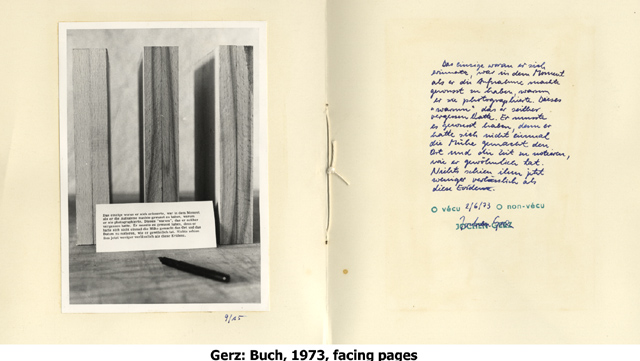 Das einzige woran er sich erinnerte, war in dem Moment,
als er die Aufnahme machte gewusst zu haben, warum
er sie photographierte. Dieses "warum", das er seither
vergessen hatte. Er musste es gewusst haben, denn er
hatte sich nicht einmal die Mühe gemacht den Ort und
zu notieren, wie er gewöhnlich tat. Nichts schien
ihm jetzt weniger verlässlich als diese Evidenz.
9/25
Das einzige woran er sich
erinnerte, war in dem Moment
als er die Aufnahme machte
gewusst zu haben, warum
er sie photographierte. Dieses
"warum" das er seither
vergessen hatte. Er musste
es gewusst haben, denn er
hatte sich nicht einmal
die Mühe gemacht den
Ort und die Zeit zu notieren,
wie er gewöhnlich tat.
Nichts schien ihm jetzt
weniger verlässlich als
diese Evidenz.
O vécu 2/6/73 O non-vécu
JOCHEN GERZ
Gerz: Buch, 1973, facing pages